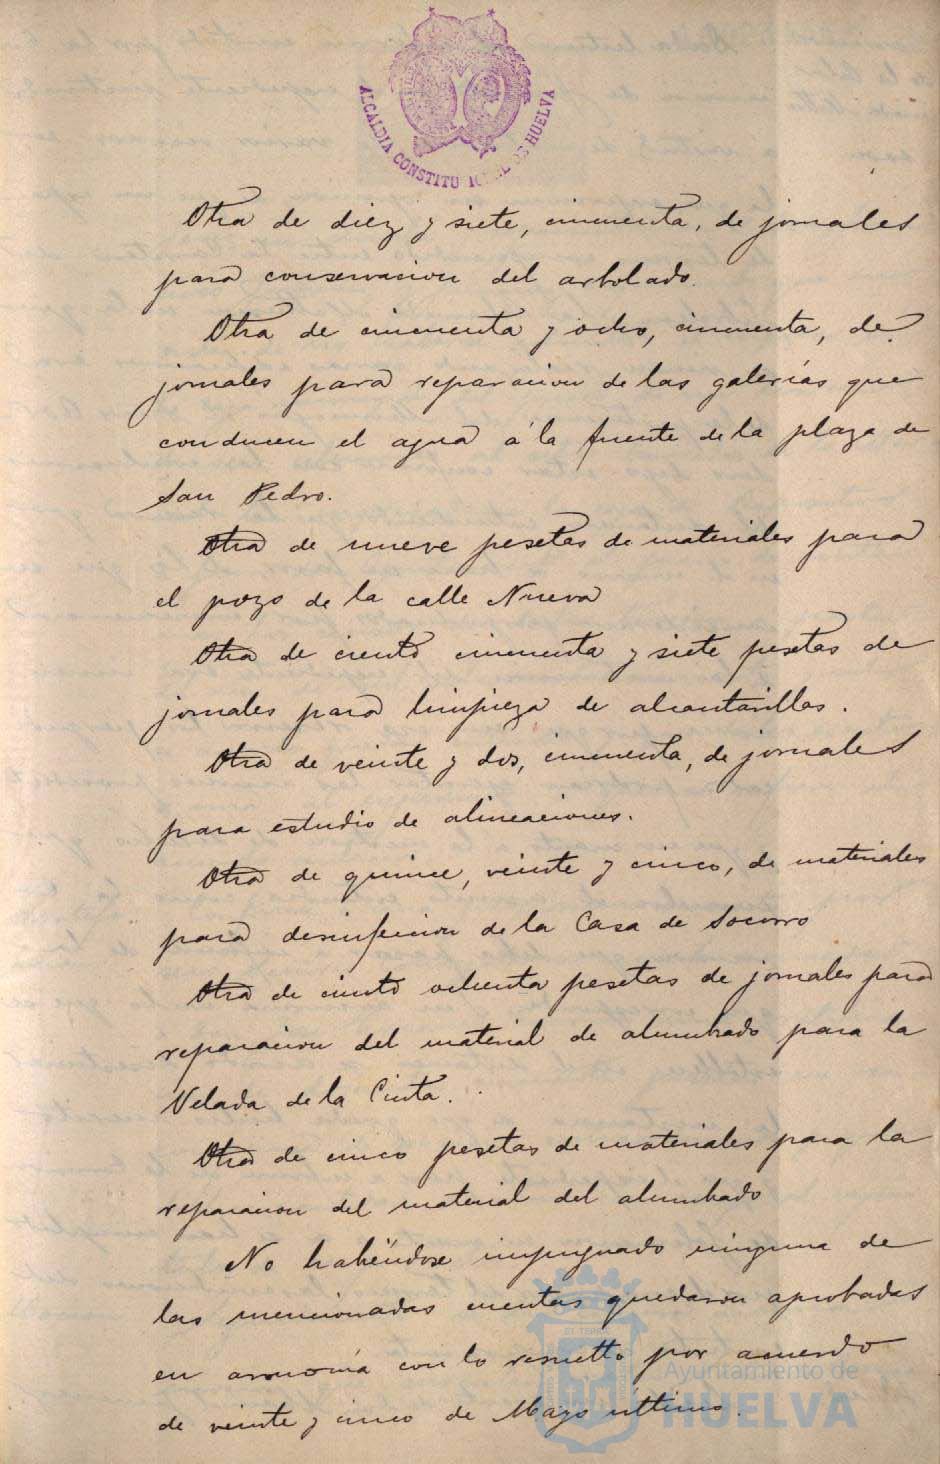 ALCALDIA CONSTITU IONAL DE HUELVA
Otra de diez y siete, cincuenta, de jornales
para conservacion del arbolado.
Otra de cincuenta y ocho, cincuenta, de
jornales para reparacion de las galerías que
conducen el agua á la fuente de la plaza de
San Pedro.
Otra de nueve pesetas de materiales para
el pozo de la calle Nueva
Otra de ciento cincuenta y siete pesetas de
jornales para limpieza de alcantarillas.
Otra de veinte y dos, cincuenta, de jornales
para estudio de alineaciones.
Otra de quince, veinte y cinco, de materiales
para desinfeccion de la Casa de Socorro
Otra de ciento ochenta pesetas de jornales para
reparacion del material de alumbrado para la
Velada de la Cinta.
Otra de cinco pesetas de materiales para la
reparacion del material del alumbrado
No habiéndose impugnado ninguna de
las mencionadas cuentas quedaron aprobadas
en armonía con lo resuelto por acuerdo
de veinte y cinco de Mayo último.
Ayuntamiento de
HUELVA